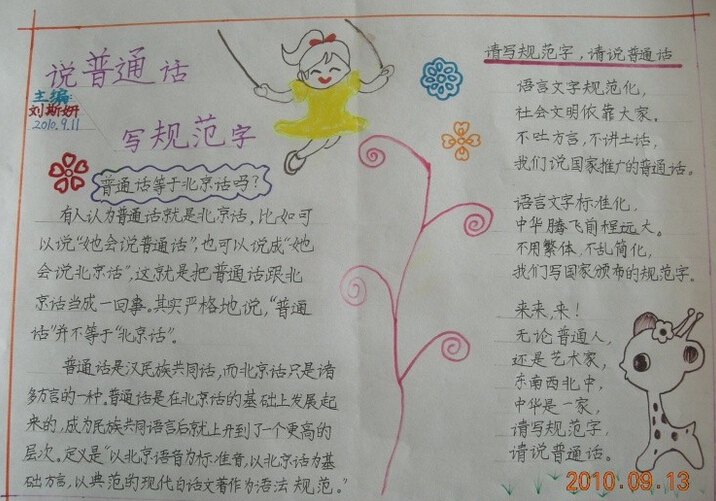 说普通话
主编:
刘斯妍
2010.9.11
写规范字
普通话等于北京话吗?
有人认为普通话就是北京话,比如可
以说“她会说普通话”,也可以说成“她
会说北京话”,这就是把普通话跟北
京话当成一回事。其实严格地说,“普通
话”并不等于“北京话”。
普通话是汉民族共同话,而北京话只是诸
多方言的一种。普通话是在北京话的基础上发展起
来的,成为民族共同语言后就上升到了一个更高的
层次。定义是“以北京语音为标准音,以北京话为基
础方言,以典范的现代白话文著作为语法规范。”
请写规范字,请说普通话
语言文字规范化,
社会文明依靠大家。
不吐方言,不讲土话,
我们说国家推广的普通话。
语言文字标准化,
中华腾飞前程远大。
不用繁体,不乱简化,
我们写国家颁布的规范字。
来,来,来!
无论普通人,
还是艺术家,
东南西北中,
中华是一家,
请写规范字,
请说普通话。
2010.09.13